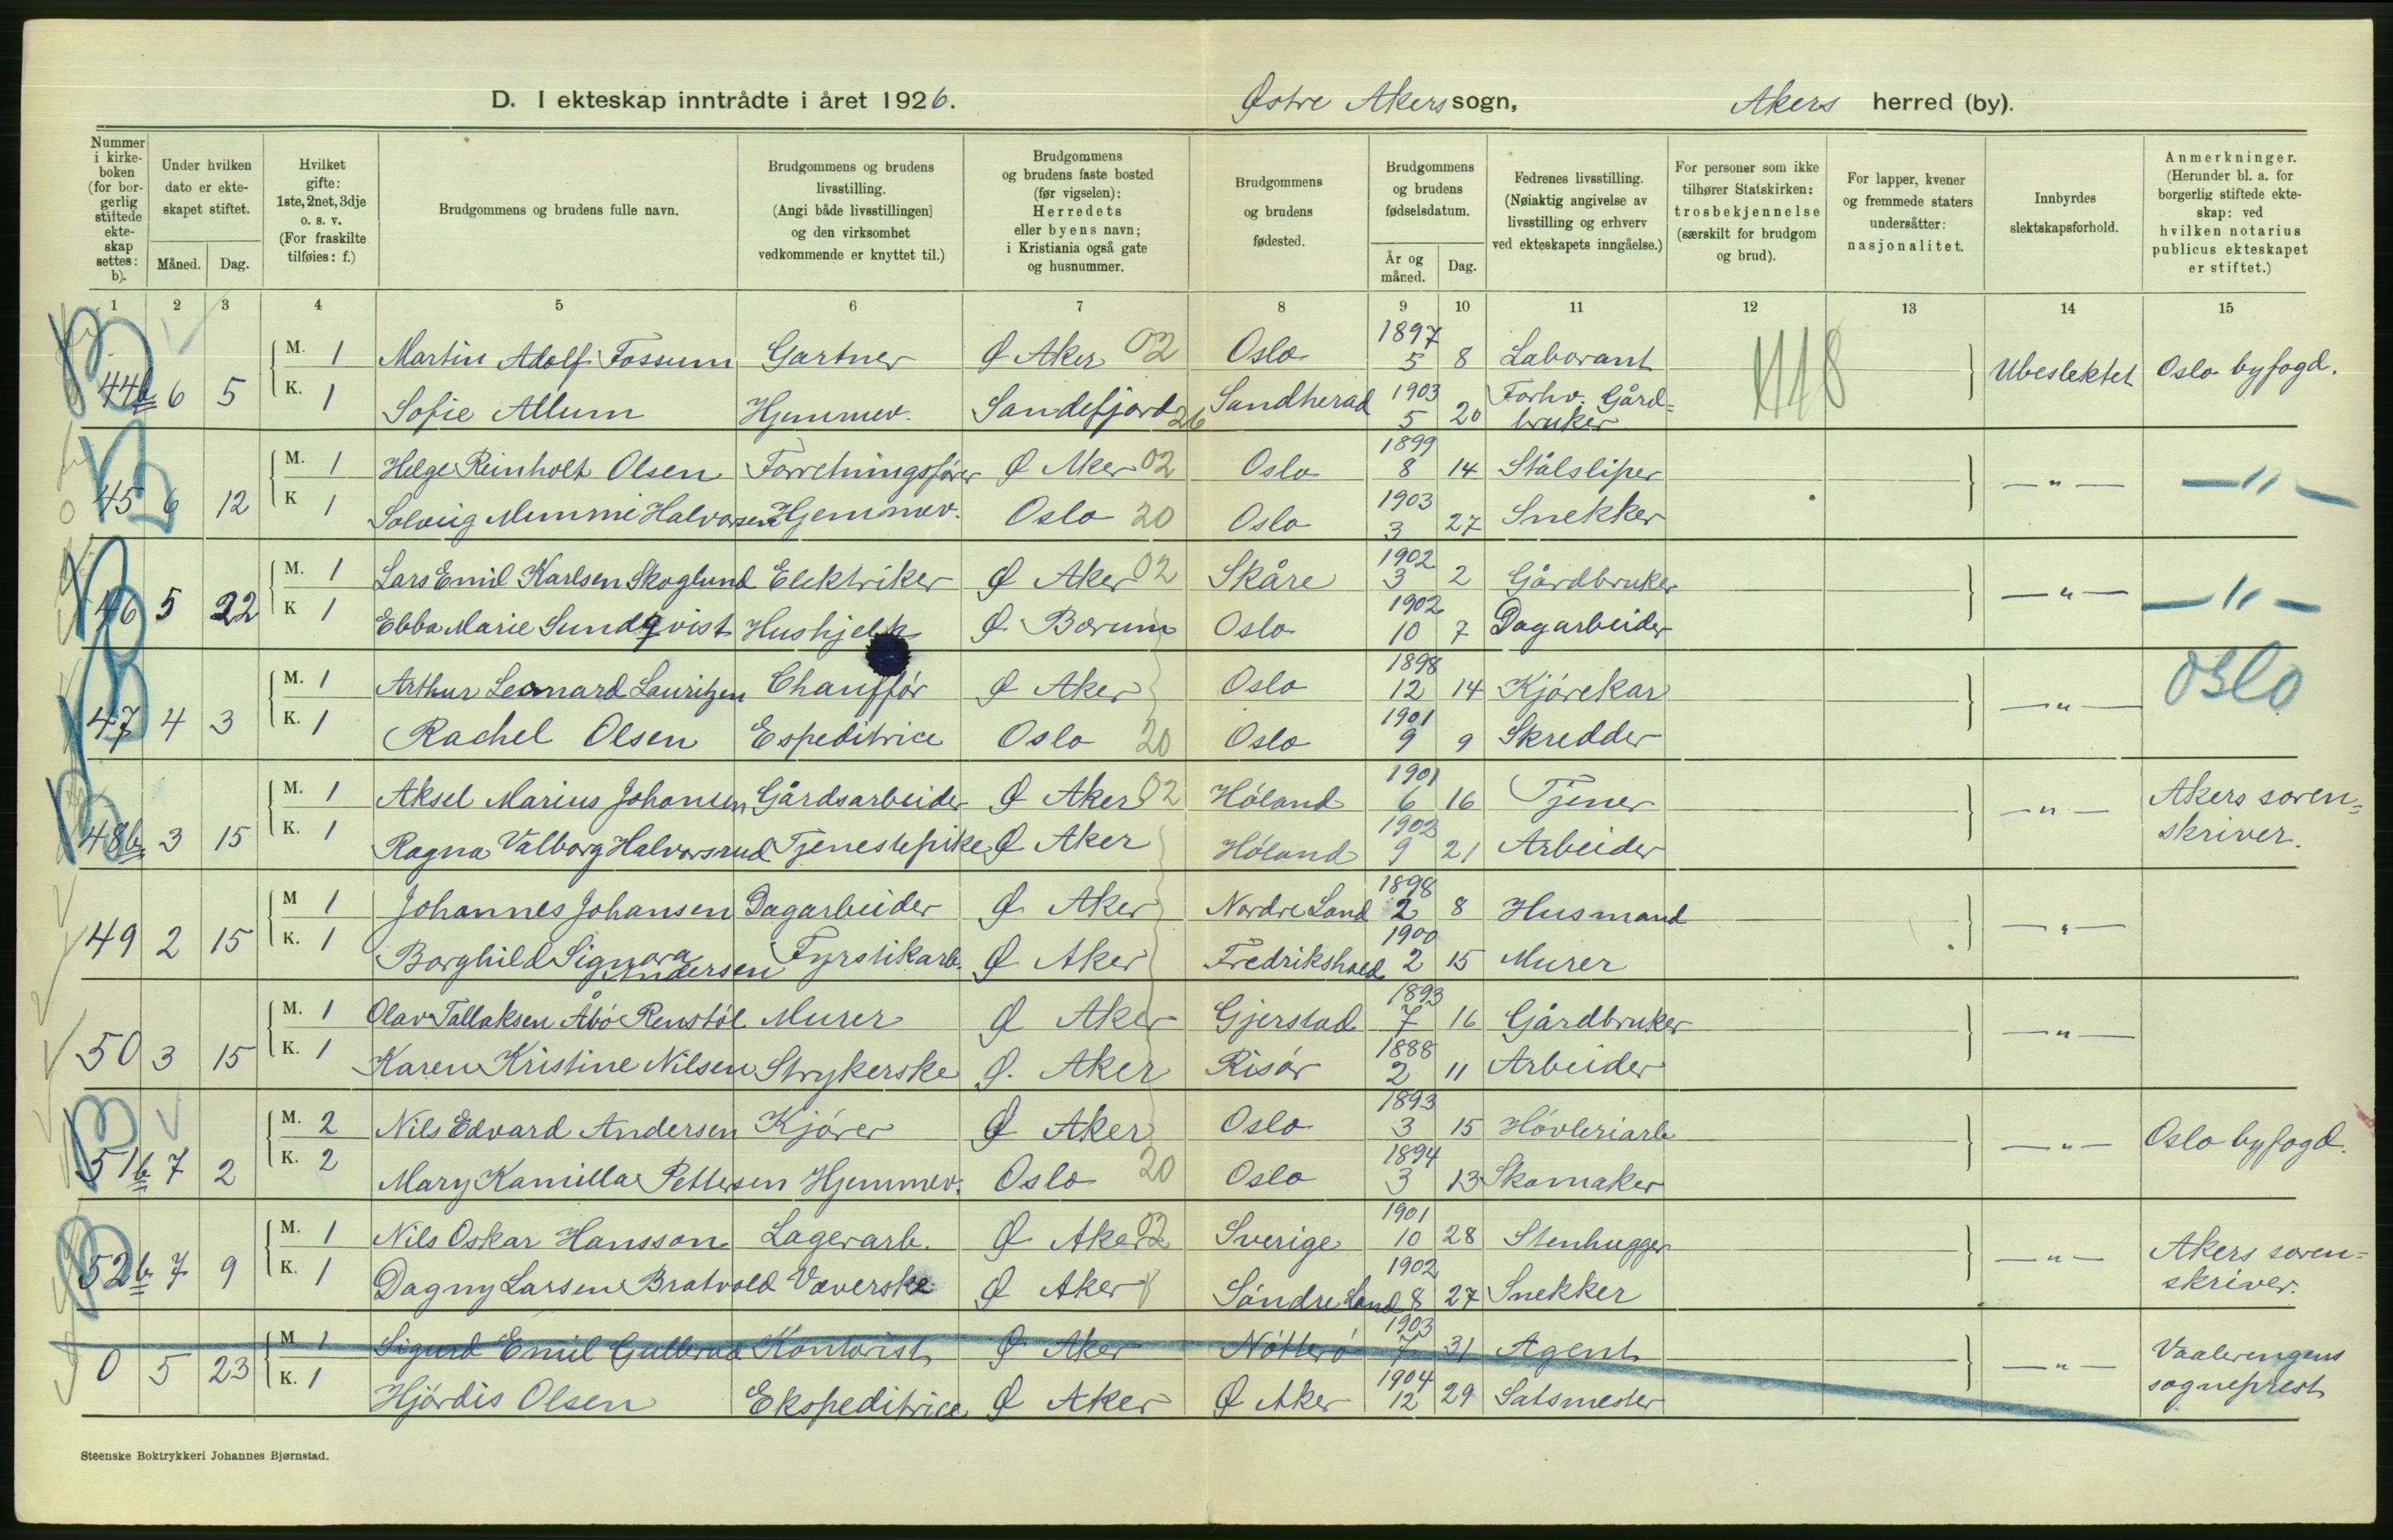 D. I ekteskap inntrådte i året 1926. Østre Akers sogn, Akers herred (by).
Nummer i kirke-boken (for bor-gerlig stiftede ekte-skap settes: b).
Under hvilken dato er ekte-skapet stiftet.
Måned. Dag.
Hvilket gifte: 1ste, 2net, 3dje o. s. v. (For fraskilte tilføies: f.)
Brudgommens og brudens fulle navn.
Brudgommens og brudens livsstilling. (Angi både livsstillingen) og den virksomhet vedkommende er knyttet til.)
Brudgommens og brudens faste bosted (før vigselen): Herredets eller byens navn; i Kristiania også gate og husnummer.
Brudgommens og brudens fødested.
Brudgommens og brudens fødselsdatum.
År og måned. Dag.
Fedrenes livsstilling. (Nøiaktig angivelse av livsstilling og erhverv ved ekteskapets inngåelse.)
For personer som ikke tilhører Statskirken: trosbekjennelse (særskilt for brudgom og brud).
For lapper, kvener og fremmede staters undersåtter: nasjonalitet.
Innbyrdes slektskapsforhold.
Anmerkninger. (Herunder bl. a. for borgerlig stiftede ekte-skap: ved hvilken notarius publicus ekteskapet er stiftet.)
1 2 3 4 5 6 7 8 9 10 11 12 13 14 15
M. 1 Martin Adolf Fossum Gartner Ø Aker 02 Oslo 1897 5 8 Laborant
44b 6 5 Ubeslektet Oslo byfogd.
K. 1 Sofie Allum Hjemmev. Sandefjord 26 Sandherad 1903 5 20 Forhv. Gård=bruker
M. 1 Helge Reinholt Olsen Forretningsfører Ø Aker 02 Oslo 1899 8 14 Stålsliper
45 6 12 — " — — " —
K 1 Solveig Mimmi Halvorsen Hjemmev. Oslo 20 Oslo 1903 3 27 Snekker
M. 1 Lars Emil Karlsen Skoglund Elektriker Ø Aker 02 Skåre 1902 3 2 Gårdbruker
46 5 22 — " — — " —
K 1 Ebba Marie Sundqvist Hushjelp Ø Bærum Oslo 1902 10 7 Dagarbeider
M. 1 Arthur Leonard Lauritzen Chauffør Ø Aker Oslo 1898 12 14 Kjørekar
47 4 3 — " — Oslo
K. 1 Rachel Olsen Espeditrice Oslo 20 Oslo 1901 9 9 Skredder
M. 1 Aksel Marius Johansen Gårdsarbeider Ø Aker 02 Høland 1901 6 16 Tjener
48b 3 15 — " — Akers soren=skriver.
K. 1 Ragna Valborg Halvorsrud Tjenestepike Ø Aker Høland 1902 9 21 Arbeider
M 1 Johannes Johansen Dagarbeider Ø Aker Nordre Land 1898 2 8 Husmand
49 2 15 — " —
K. 1 Borghild Signora Andersen Fyrstikarb. Ø Aker Fredrikshald 1900 2 15 Murer
M. 1 Olav Tallaksen Åbø Renstøl Murer Ø Aker Gjerstad 1893 7 16 Gårdbruker
50 3 15 — " —
K. 1 Karen Kristine Nilsen Strykerske Ø. Aker Risør 1888 2 11 Arbeider
M. 2 Nils Edvard Andersen Kjører Ø Aker Oslo 1893 3 15 Høvleriarb
51b 7 2 — " — Oslo byfogd.
K. 2 Mary Kamilla Pettersen Hjemmev. Oslo 20 Oslo 1894 3 13 Skomaker
M. 1 Nils Oskar Hansson Lagerarb. Ø Aker 02 Sverige 1901 10 28 Stenhugger
52b 7 9 — " — Akers soren=skriver.
K. 1 Dagny Larsen Bratvold Væverske Ø Aker Søndre Land 1902 8 27 Snekker
M 1 Sigurd Emil Gullerud Kontorist Ø Aker Nøtterø 1903 7 31 Agent
0 5 23 — " — Vaalerengens sogneprest
K. 1 Hjørdis Olsen Ekspeditrice Ø Aker Ø Aker 1904 12 29 Satsmester
Steenske Boktrykkeri Johannes Bjørnstad.